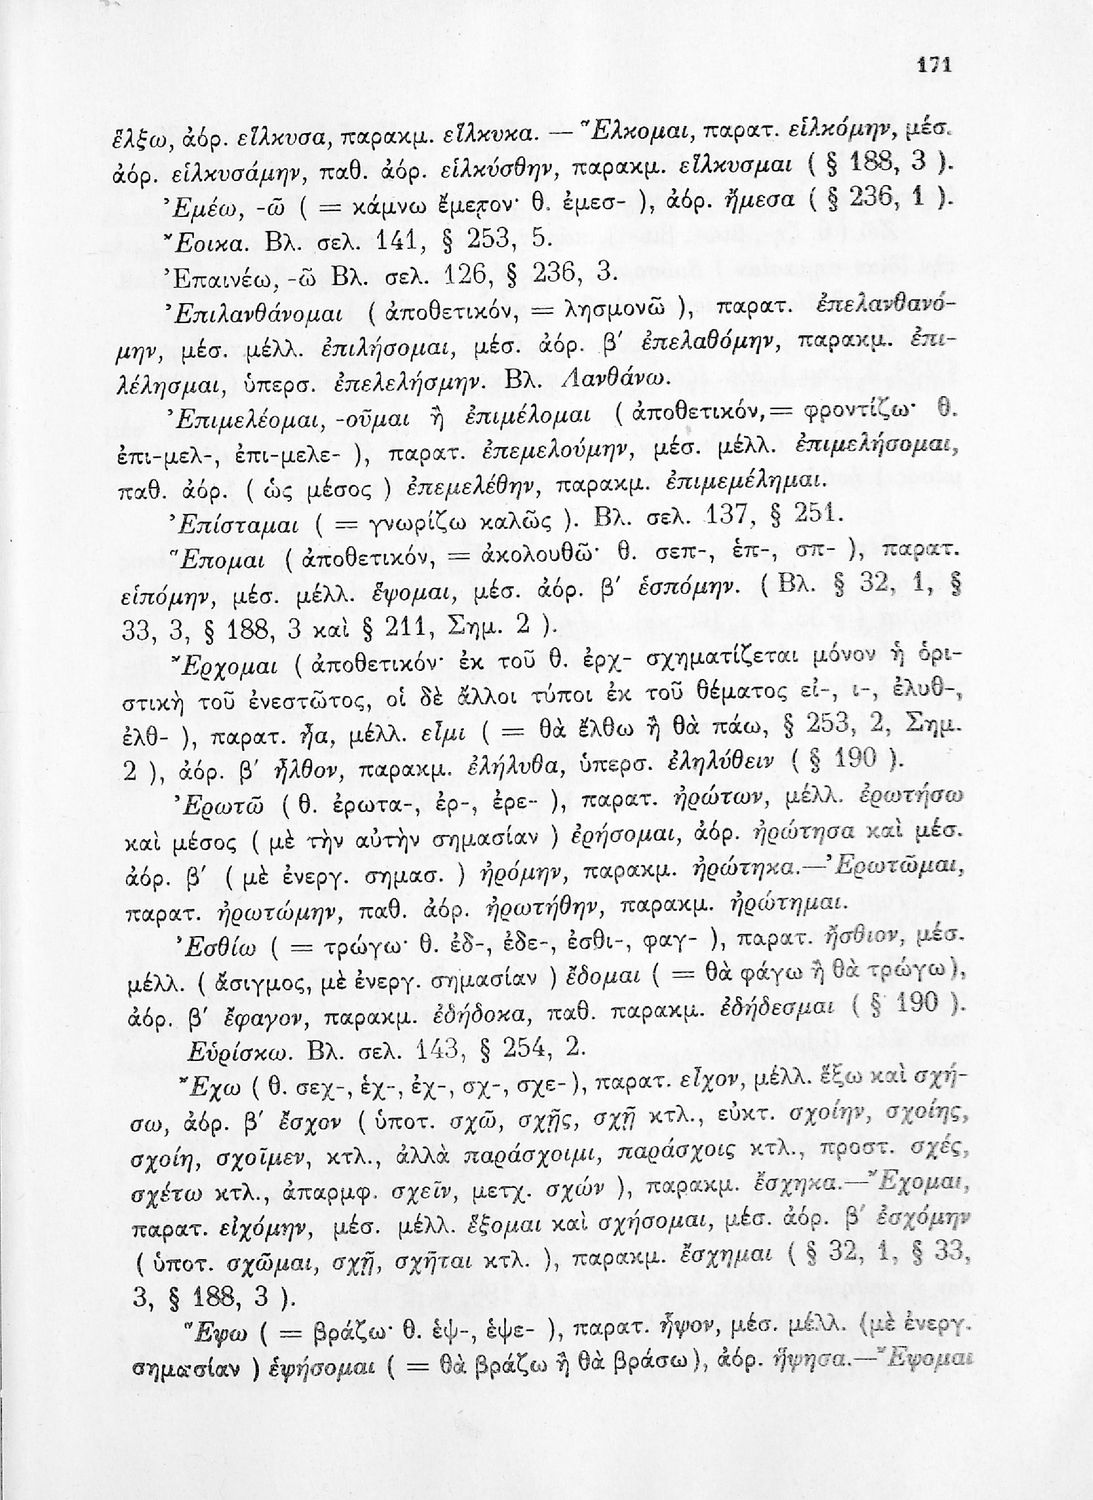 171
ἕλξω, ἀόρ. εἵλκυσα, παρακμ. εἵλκυκα. — Ἕλκομαι, παρατ. εἱλκόμην, μέσ.
ἀόρ. εἱλκυσάμην, παθ. ἀόρ. εἱλκύσθην, παρακμ. εἵλκυσμαι ( § 188, 3 ).
Ἐμέω, -ῶ ( = κάμνω ἔμετον· θ. ἐμεσ- ), ἀόρ. ἤμεσα ( § 236, 1 ).
Ἔοικα. Βλ. σελ. 141, § 253, 5.
Ἐπαινέω, -ῶ Βλ. σελ. 126, § 236, 3.
Ἐπιλανθάνομαι ( ἀποθετικόν, = λησμονῶ ), παρατ. ἐπελανθανό-
μην, μέσ. μέλλ. ἐπιλήσομαι, μέσ. ἀόρ. β΄ ἐπελαθόμην, παρακμ. ἐπι-
λέλησμαι, ὑπερσ. ἐπελελήσμην. Βλ. Λανθάνω.
Ἐπιμελέομαι, -οῦμαι ἢ ἐπιμέλομαι ( ἀποθετικόν, = φροντίζω· θ.
ἐπι-μελ-, ἐπι-μελε- ), παρατ. ἐπεμελούμην, μέσ. μέλλ. ἐπιμελήσομαι,
παθ. ἀόρ. ( ὡς μέσος ) ἐπεμελέθην, παρακμ. ἐπιμεμέλημαι.
Ἐπίσταμαι ( = γνωρίζω καλῶς ). Βλ. σελ. 137, § 251.
Ἕπομαι ( ἀποθετικόν, = ἀκολουθῶ· θ. σεπ-, ἑπ-, σπ- ), παρατ.
εἱπόμην, μέσ. μέλλ. ἕψομαι, μέσ. ἀόρ. β΄ ἑσπόμην. ( Βλ. § 32, 1, §
33, 3, § 188, 3 καὶ § 211, Σημ. 2 ).
Ἔρχομαι ( ἀποθετικόν· ἐκ τοῦ θ. ἐρχ- σχηματίζεται μόνον ἡ ὁρι-
στικὴ τοῦ ἐνεστῶτος, οἱ δὲ ἄλλοι τύποι ἐκ τοῦ θέματος εἰ-, ι-, ἐλυθ-,
ἐλθ- ), παρατ. ᾖα, μέλλ. εἶμι ( = θὰ ἔλθω ἢ θὰ πάω, § 253, 2, Σημ.
2 ), ἀόρ. β΄ ἦλθον, παρακμ. ἐλήλυθα, ὑπερσ. ἐληλύθειν ( § 190 ).
Ἐρωτῶ ( θ. ἐρωτα-, ἐρ-, ἐρε- ), παρατ. ἠρώτων, μέλλ. ἐρωτήσω
καὶ μέσος ( μὲ τὴν αὐτὴν σημασίαν ) ἐρήσομαι, ἀόρ. ἠρώτησα καὶ μέσ.
ἀόρ. β΄ ( μὲ ἐνεργ. σημασ. ) ἠρόμην, παρακμ. ἠρώτηκα.—Ἐρωτῶμαι,
παρατ. ἠρωτώμην, παθ. ἀόρ. ἠρωτήθην, παρακμ. ἠρώτημαι.
Ἐσθίω ( = τρώγω· θ. ἐδ-, ἐδε-, ἐσθι-, φαγ- ), παρατ. ἤσθιον, μέσ.
μέλλ. ( ἄσιγμος, μὲ ἐνεργ. σημασίαν ) ἔδομαι ( = θὰ φάγω ἢ θὰ τρώγω ),
ἀόρ. β΄ ἔφαγον, παρακμ. ἐδήδοκα, παθ. παρακμ. ἐδήδεσμαι ( § 190 ).
Εὑρίσκω. Βλ. σελ. 143, § 254, 2.
Ἔχω ( θ. σεχ-, ἑχ-, ἐχ-, σχ-, σχε- ), παρατ. εἶχον, μέλλ. ἕξω καὶ σχή-
σω, ἀόρ. β΄ ἔσχον ( ὑποτ. σχῶ, σχῇς, σχῇ κτλ., εὐκτ. σχοίην, σχοίης,
σχοίη, σχοῖμεν, κτλ., ἀλλὰ παράσχοιμι, παράσχοις κτλ., προστ. σχές,
σχέτω κτλ., ἀπαρμφ. σχεῖν, μετχ. σχών ), παρακμ. ἔσχηκα.—Ἔχομαι,
παρατ. εἰχόμην, μέσ. μέλλ. ἕξομαι καὶ σχήσομαι, μέσ. ἀόρ. β΄ ἐσχόμην
( ὑποτ. σχῶμαι, σχῇ, σχῆται κτλ. ), παρακμ. ἔσχημαι ( § 32, 1, § 33,
3, § 188, 3 ).
Ἕψω ( = βράζω· θ. ἑψ-, ἑψε- ), παρατ. ἧψον, μέσ. μέλλ. (μὲ ἐνεργ.
σημασίαν ) ἑψήσομαι ( = θὰ βράζω ἢ θὰ βράσω ), ἀόρ. ἥψησα.—Ἕψομαι